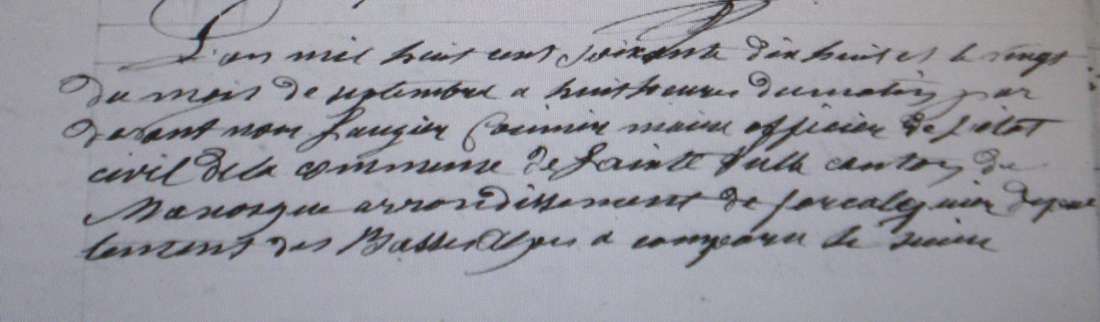 L'an mil huit cent soixante dix huit et le vingt
du mois de septembre a huit heures du matin par
devant nous Laugier maire officier de l'état
civil de la commune de Sainte Tulle canton de
Manosque arrondissement de forcalquier depar
tement des Basses Alpes a comparu le sieur